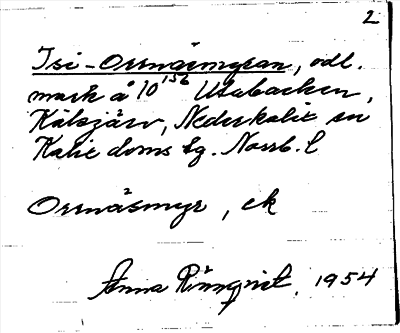 2
Isi-Orrnäsmyran, odl.
mark å 10¹⁵² Utabacken,
Kälsjärv, Nederkalix sn
Kalix doms lg. Norrb. l
Orrnäsmyr, ek
Anna Rönnqvist, 1954